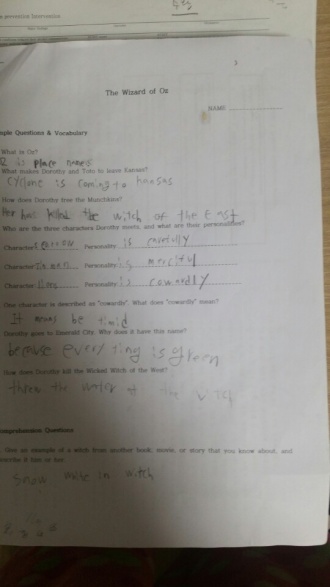 prevention Intervention
3
The Wizard of Oz
NAME
mple Questions & Vocabulary
What is Oz?
is place names
What makes Dorothy and Toto to leave Kansas?
cyclone is coming to kansas
How does Dorothy free the Munchkins?
Her has killed the witch of the East
Who are the three characters Dorothy meets, and what are their personalities?
Character Personality is carefully
Character tin man Personality is merciful
Character lions Personality is cowardly
One character is described as "cowardly". What does "cowardly" mean?
it means be timid
Dorothy goes to Emerald City. Why does it have this name?
because every ting is green
How does Dorothy kill the Wicked Witch of the West?
threw the water at the witch
omprehension Questions
Give an example of a witch from another book, movie, or story that you know about, and
escribe it him or her.
Snow white in witch